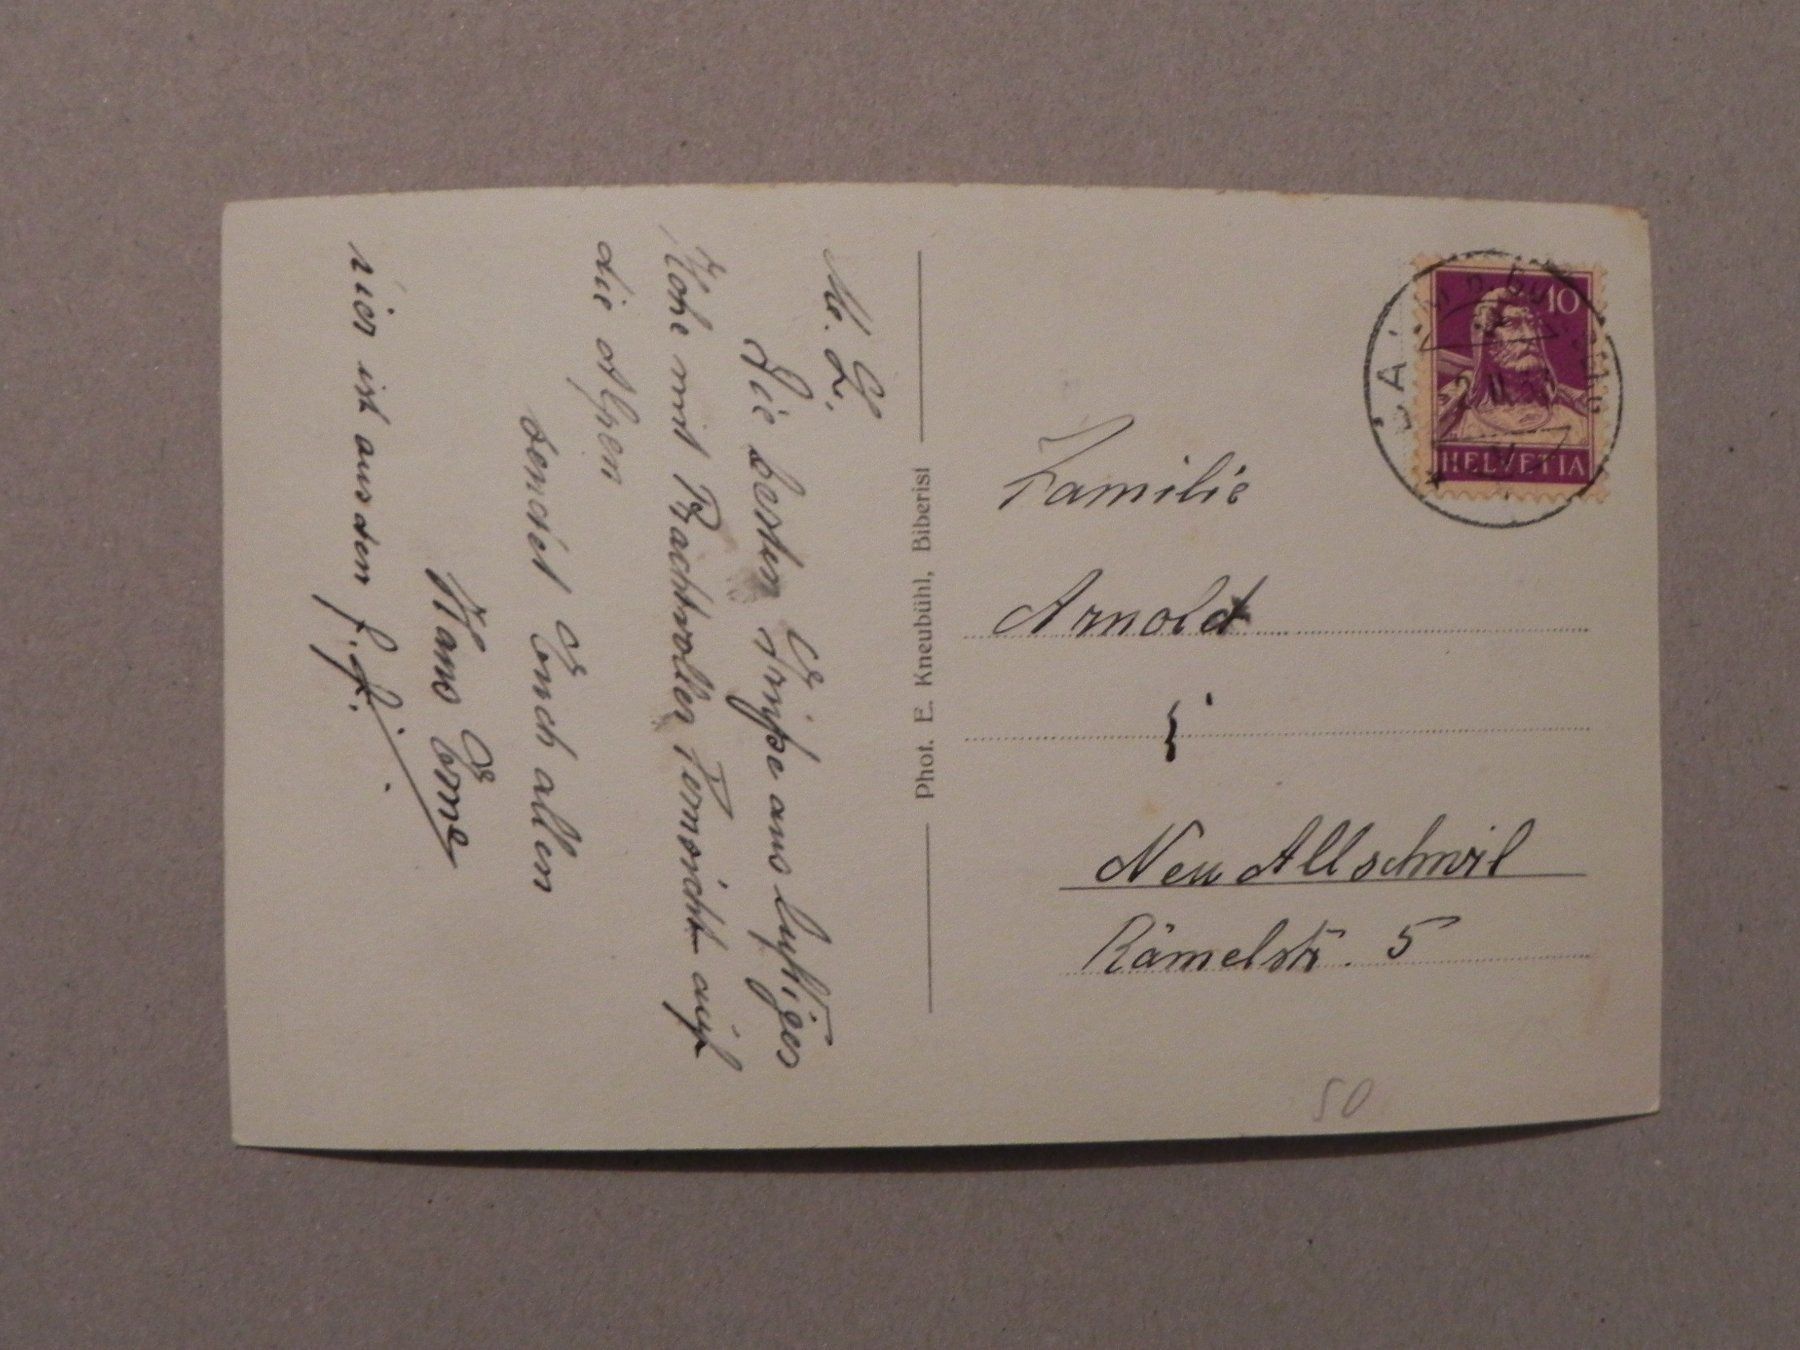 M. L.
Die besten Grüsse aus luftiger
Höhe mit Prachtvoller Fernsicht auf
die Alpen
sendet Euch allen
Hans Erne
vier ist aus dem f.f.
Phot. E. Kneubühl, Biberist
10
HELVETIA
Familie
Arnold
Neu Allschwil
Rämelstr. 5
50